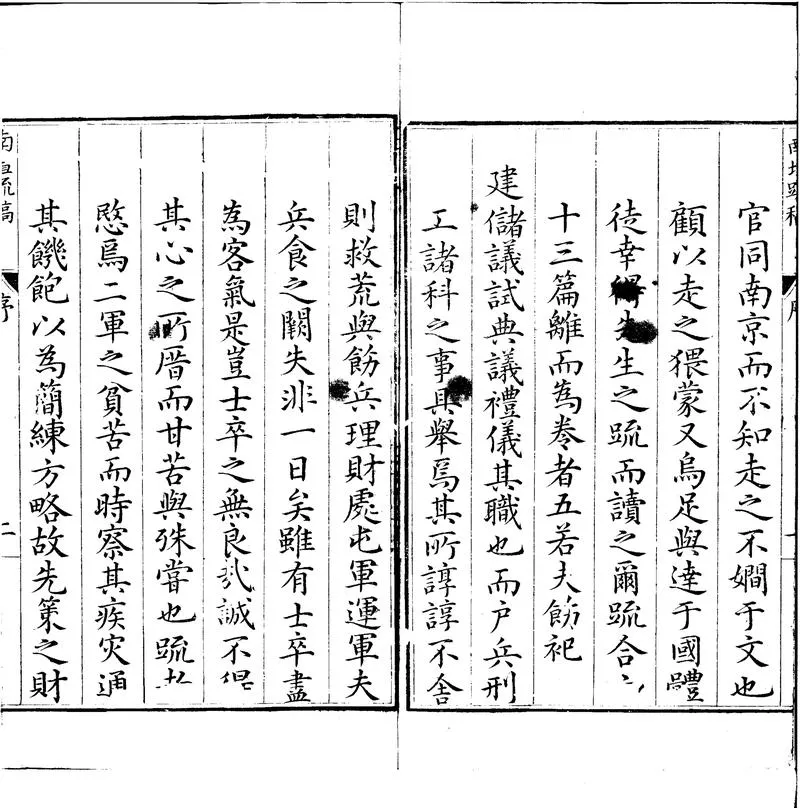 官同南京而不知走之不嫺于文也
顧以走之猥蒙又烏足與達于國體
徒幸得先生之疏而讀之爾疏合
十三篇離而為卷者五若夫飭祀
建儲議試典議禮儀其職也而户兵刑
工諸科之事具舉焉其所諄諄不舍
則救荒與飭兵理財處屯軍運軍夫
兵食之闕失非一日矣雖有士卒盡
為客氣是豈士卒之無良哉誠不得
其心之所厝而甘苦與殊嘗也疏
愍焉二軍之貧苦而時察其疾灾通
其饑飽以為簡練方略故先策之財
南疏稿
序
二